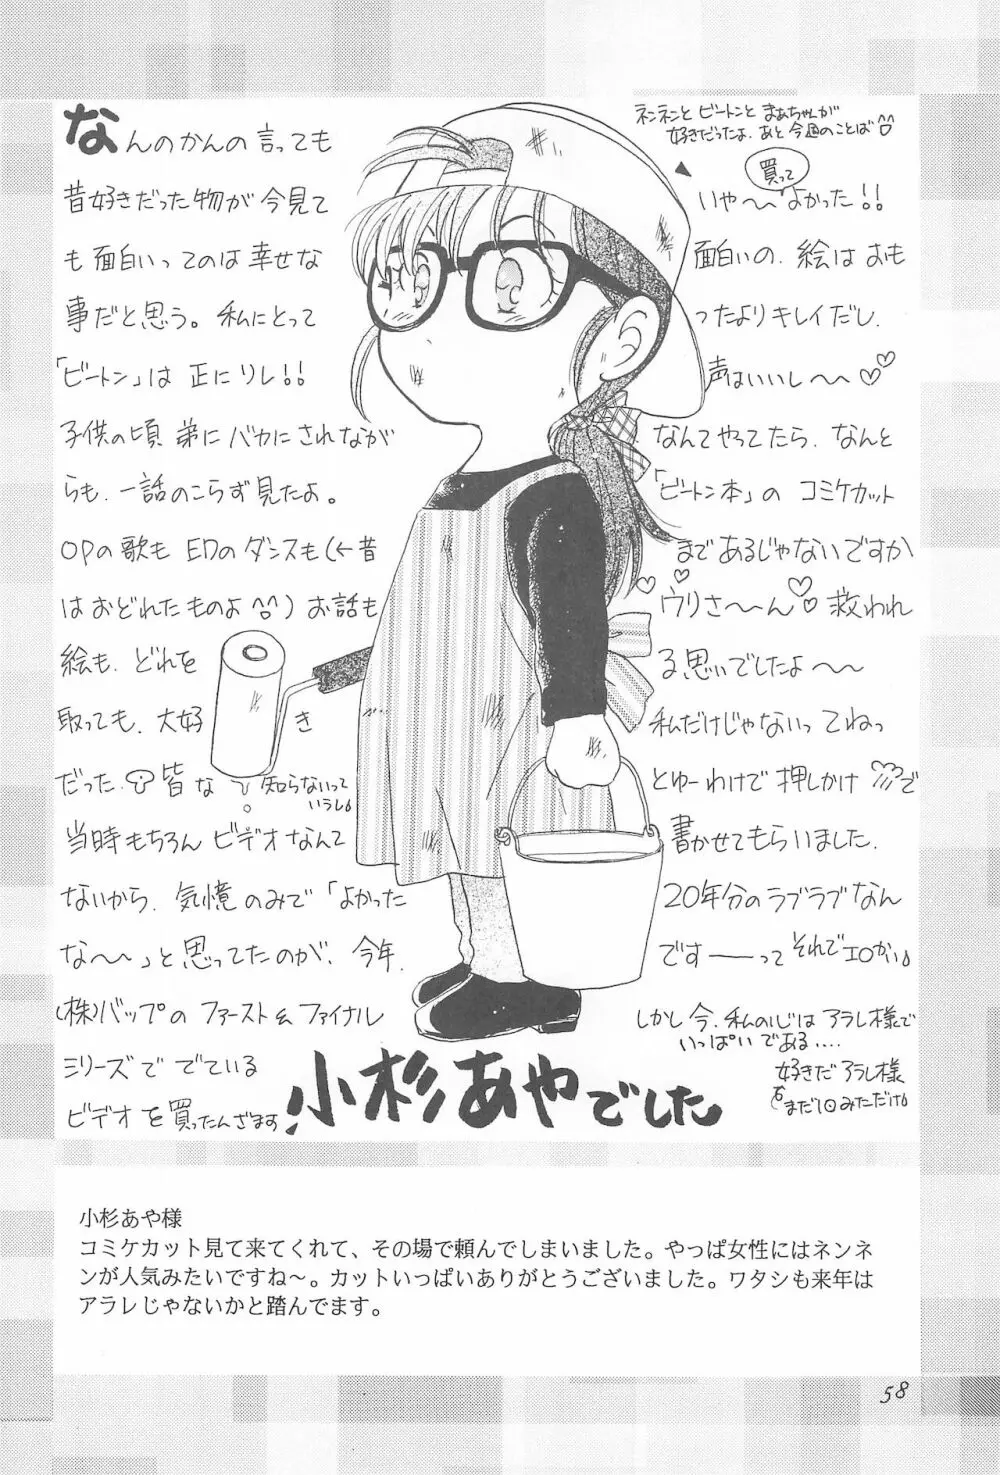 なんのかんの言っても
昔好きだった物が今見て
も面白いってのは幸せな
事だと思う。私にとって
「ビートン」は正にソレ!!
子供の頃弟にバカにされなが
らも、一話のこらず見たよ。
OPの歌もEDのダンスも(←昔
はおどれたものよ)お話も
絵も、どれを
取っても、大好き
だった。皆な
知らないって
いうし
当時もちろんビデオなんて
ないから、気憶のみで「よかった
な〜〜」と思ってたのが、今年、
(株)バップのファースト&ファイナル
シリーズででている
ビデオを買ったんざます!
ネンネンとビートンとまあちゃんが
好きだったよ。あと今週のことば
いや〜〜買ってよかった!!
面白いの、絵はおも
ったよりキレイだし、
声はいいし〜〜♡♡
なんてやってたら、なんと
「ビートン本」のコミケカット
まであるじゃないですか
♡♡ウリさ〜〜ん♡♡救われ
る思いでしたよ〜〜
私だけじゃないってねっ
とゆーわけで押しかけで
書かせてもらいました。
20年分のラブラブなん
ですーーって それでエロかい
しかし今、私の心はアラレ様で
いっぱいである....
好きだアラレ様
まだ1回みただけ
小杉あやでした
小杉あや様
コミケカット見て来てくれて、その場で頼んでしまいました。やっぱ女性にはネンネ
ンが人気みたいですね〜。カットいっぱいありがとうございました。ワタシも来年は
アラレじゃないかと踏んでます。
58